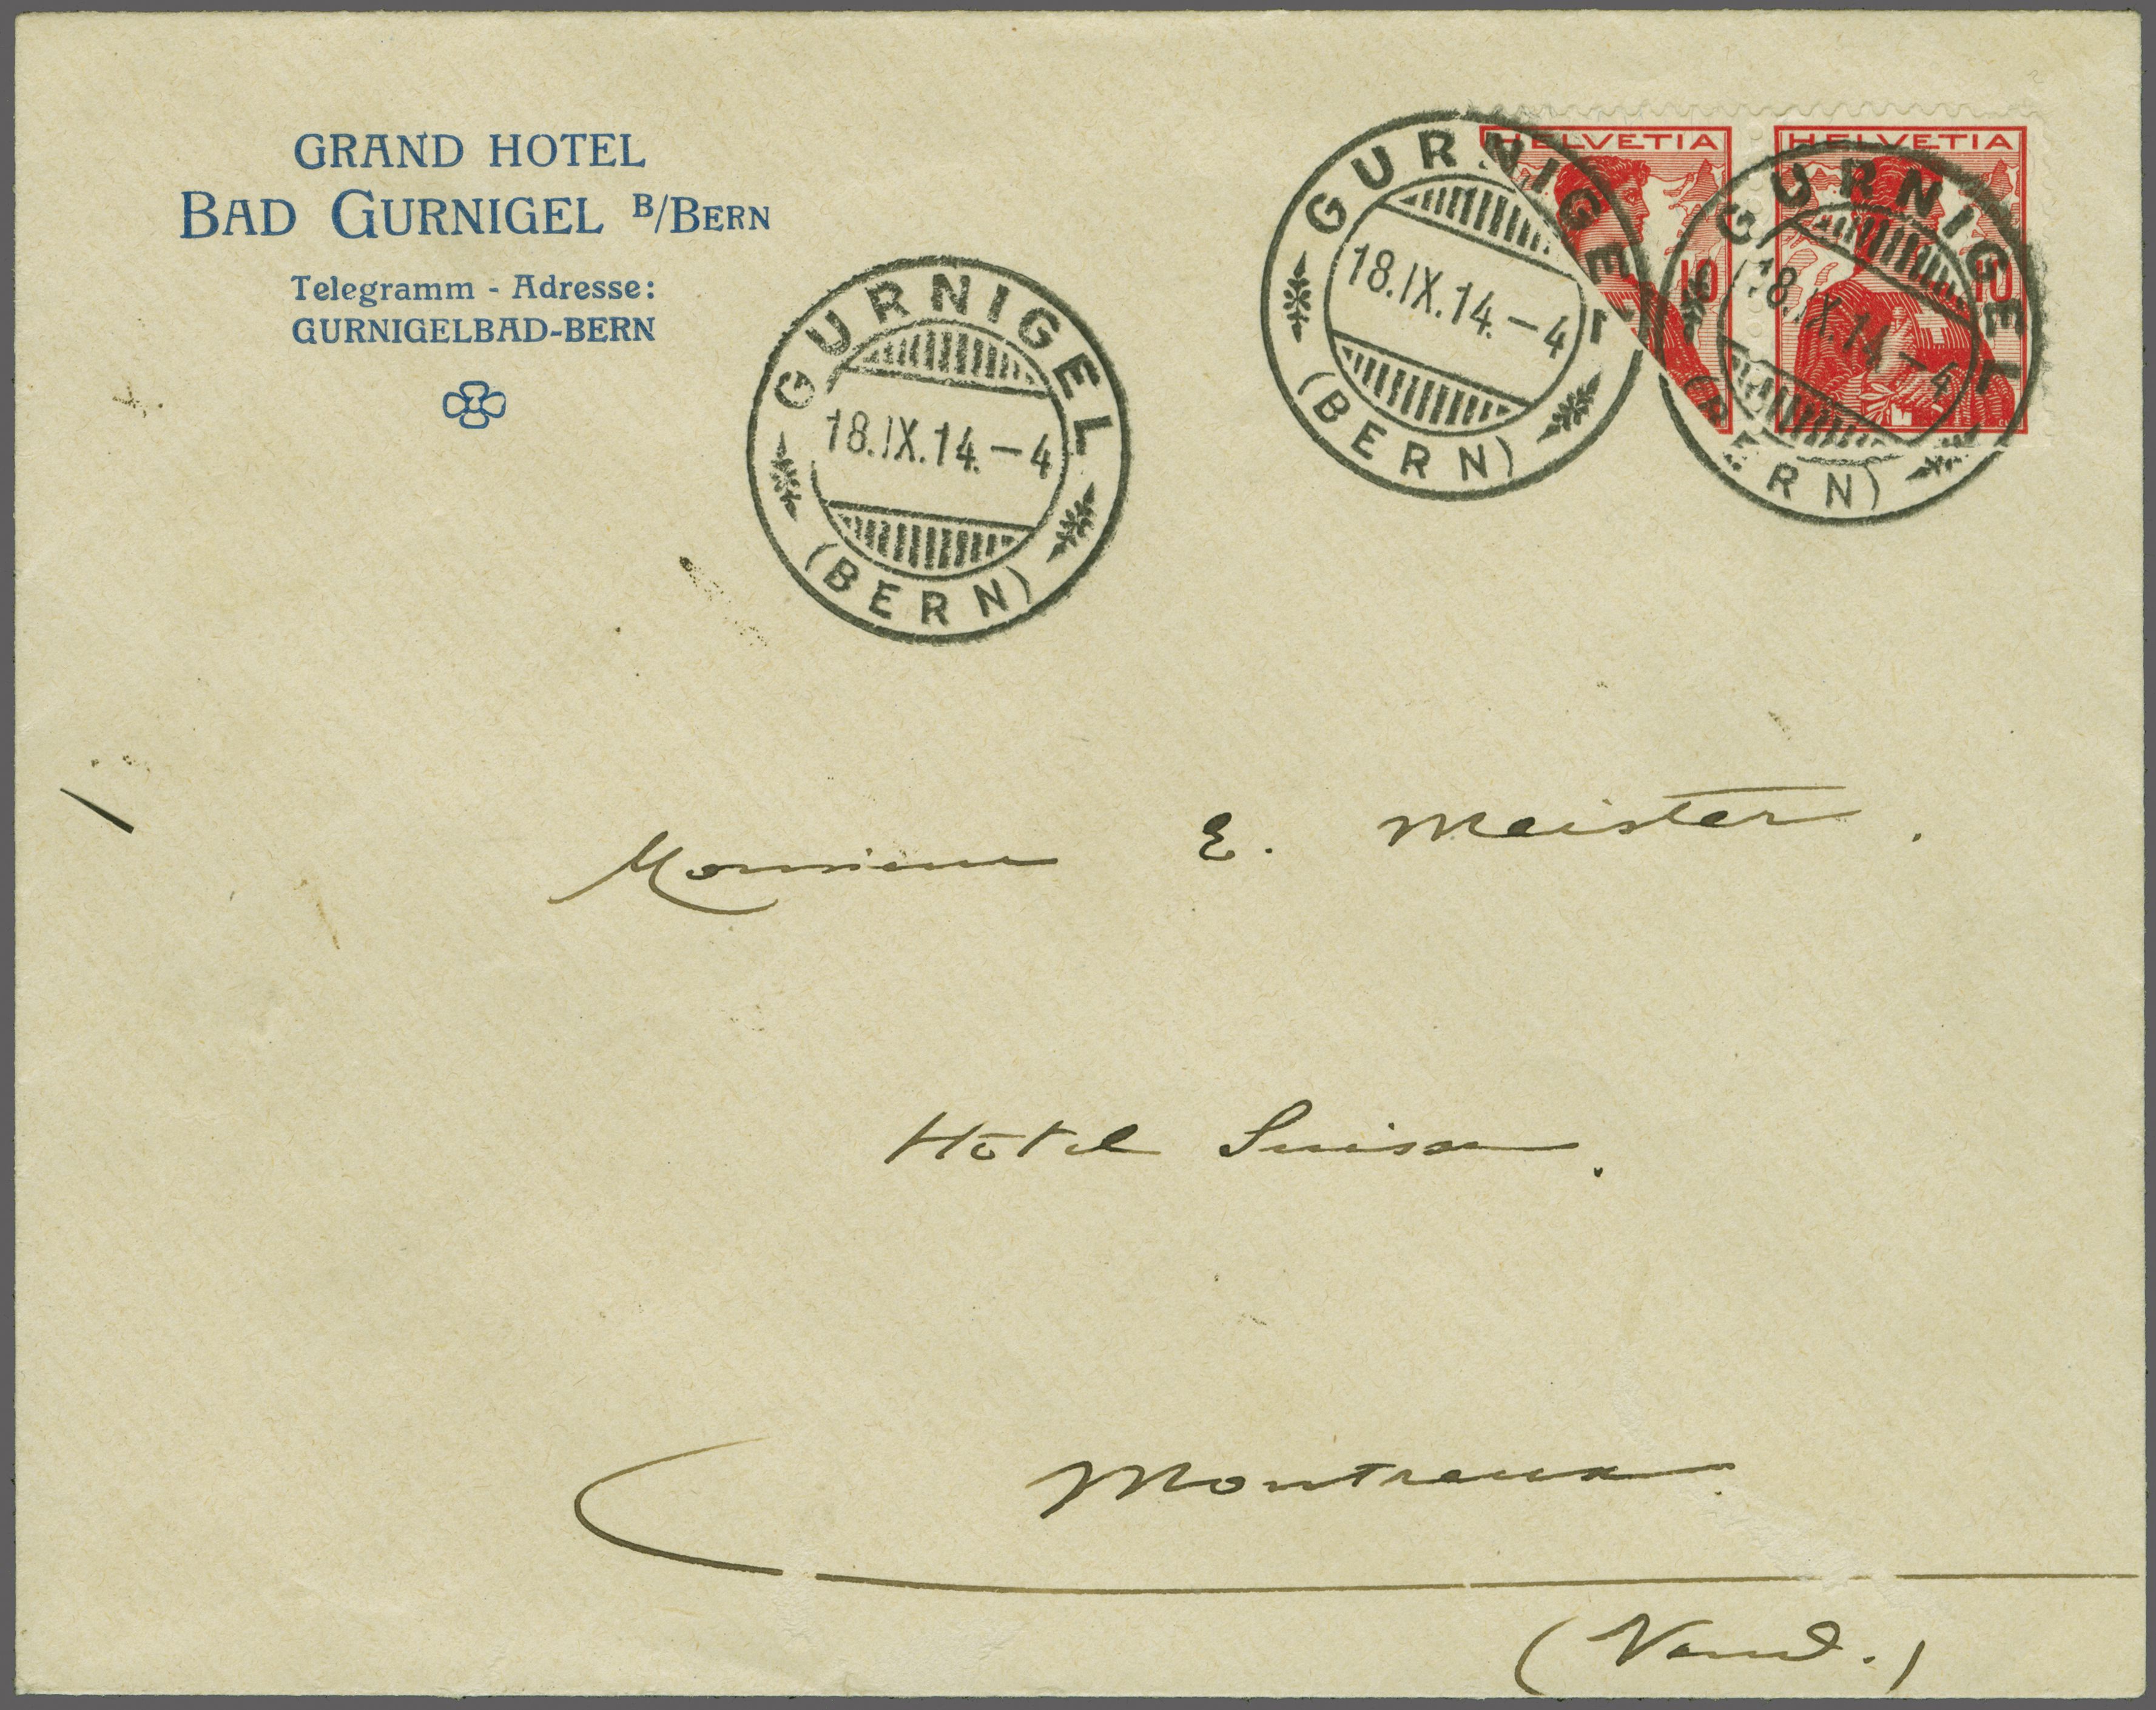 GRAND HOTEL
BAD GURNIGEL B/BERN
Telegramm - Adresse:
GURNIGELBAD-BERN
GURNIGEL
18.IX.14.-4
(BERN)
GURNIGEL
18.IX.14.-4
(BERN)
HELVETIA
10
HELVETIA
10
GURNIGEL
18.IX.14.-4
(BERN)
Monsieur E. Meister.
Hôtel Suisse.
Montreux
(Vaud.)